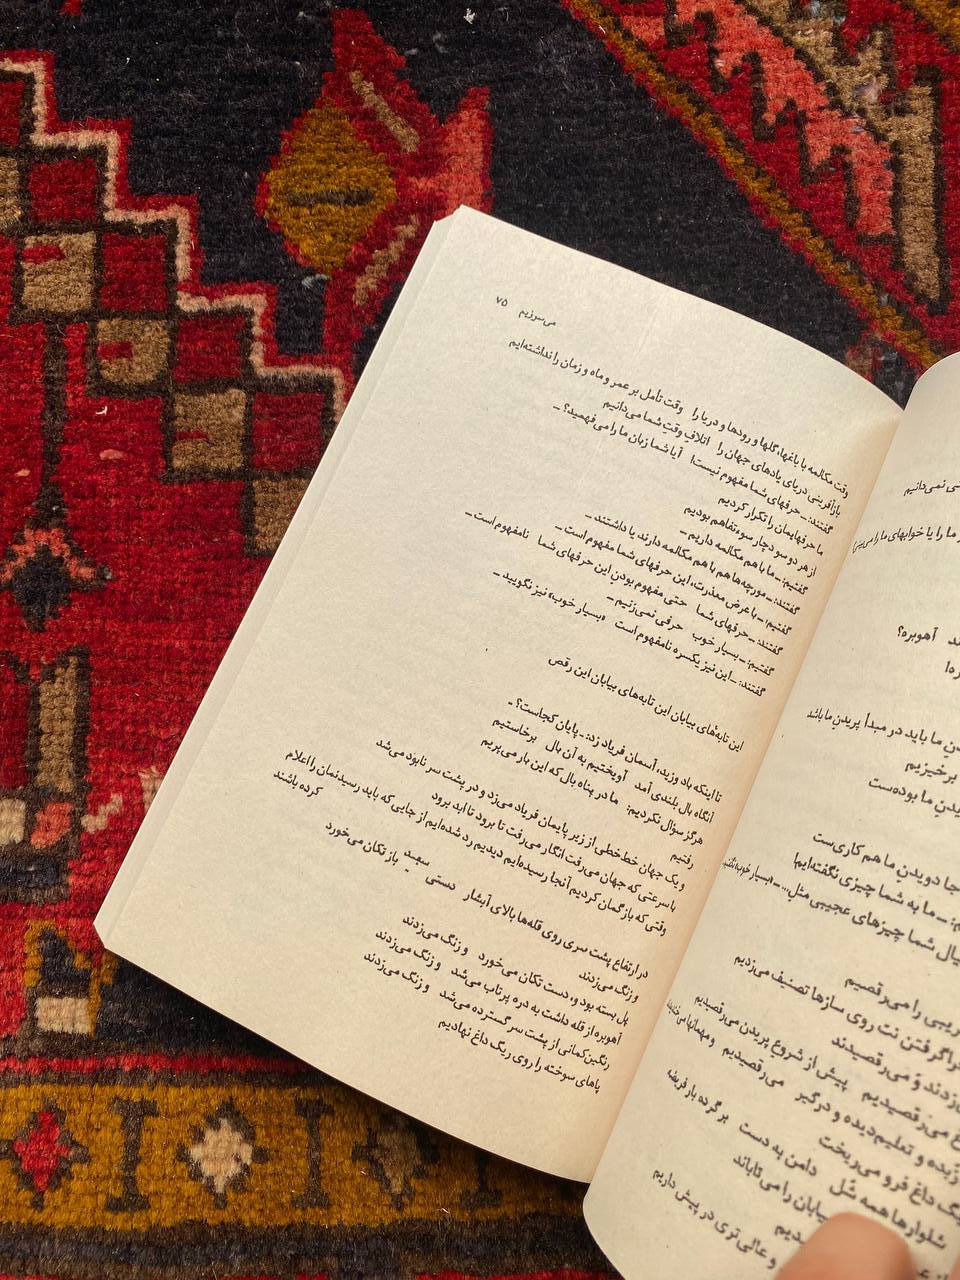 می‌سرزیم ۷۵
وقت مکالمه با باغها، گلها و رودها و دریا را وقت تأمل بر عمر و ماه و زمان را نداشته‌ایم
بازآفرینی دریای یادهای جهان را اتلافِ وقتِ شما می‌دانیم
گفتند: ـ حرفهای شما مفهوم نیست! آیا شما زبان ما را می‌فهمید؟ ـ
ما حرفهایمان را تکرار کردیم
از هر دو سو دچار سوءتفاهم بودیم
گفتیم: ـ ما با هم مکالمه داریم ـ
گفتند: ـ مورچه‌ها هم با هم مکالمه دارند یا داشتند ـ
گفتیم: ـ با عرض معذرت، این حرفهای شما مفهوم است ـ
گفتند: ـ حرفهای شما حتی مفهوم بودنِ این حرفهای شما نامفهوم است ـ
گفتیم: ـ بسیار خوب حرفی نمی‌زنیم ـ
گفتند: ـ این نیز یکسره نامفهوم است «بسیار خوب» نیز نگویید ـ
این تابه‌های بیابان این تابه‌های بیابان این رقص
تا اینکه باد وزید، آسمان فریاد زد: ـ پایان کجاست؟ ـ
آنگاه بال بلندی آمد آویختیم به آن بال برخاستیم
هرگز سؤال نکردیم: ما در پناه بال که این بار می‌پریم
رفتیم
و یک جهان خط خطی از زیر پایمان فریاد می‌زد و در پشت سر نابود می‌شد
با سرعتی که جهان می‌رفت انگار می‌رفت تا برود تا ابد برود
وقتی که باز گمان کردیم آنجا رسیده‌ایم دیدیم رد شده‌ایم از جایی که باید رسیدنمان را اعلام کرده باشند
در ارتفاع پشت سری روی قله‌ها بالای آبشار دستی سپید باز تکان می‌خورد
و زنگ می‌زدند
پل بسته بود و، دست تکان می‌خورد و زنگ می‌زدند
آهوبره از قله داشت به دره پرتاب می‌شد و زنگ می‌زدند
رنگین‌کمانی از پشت سر گسترده می‌شد و زنگ می‌زدند
پاهای سوخته را روی ریگ داغ نهادیم
نمی‌دانیم
ما را یا خوابهای ما را می‌بینی
آهوبره؟
ما باید در مبدأ پریدنِ ما باشد
برخیزیم
ما بوده‌ست
دویدنِ ما هم کاری‌ست
ـ ما به شما چیزی نگفته‌ایم!
شما چیزهای عجیبی مثلِ... ـ
را می‌رقصیم
گرفتن نت روی سازها تصنیف می‌زدیم
می‌رقصیدند
می‌رقصیدیم پیش از شروع پریدن می‌رقصیدیم
و تعلیم‌دیده و درگیر می‌رقصیدیم
داغ فرو می‌ریخت
شلوارها همه شُل دامن به دست بر گرده بار فریضه
را می‌تاباند
و عالی‌تری در پیش داریم